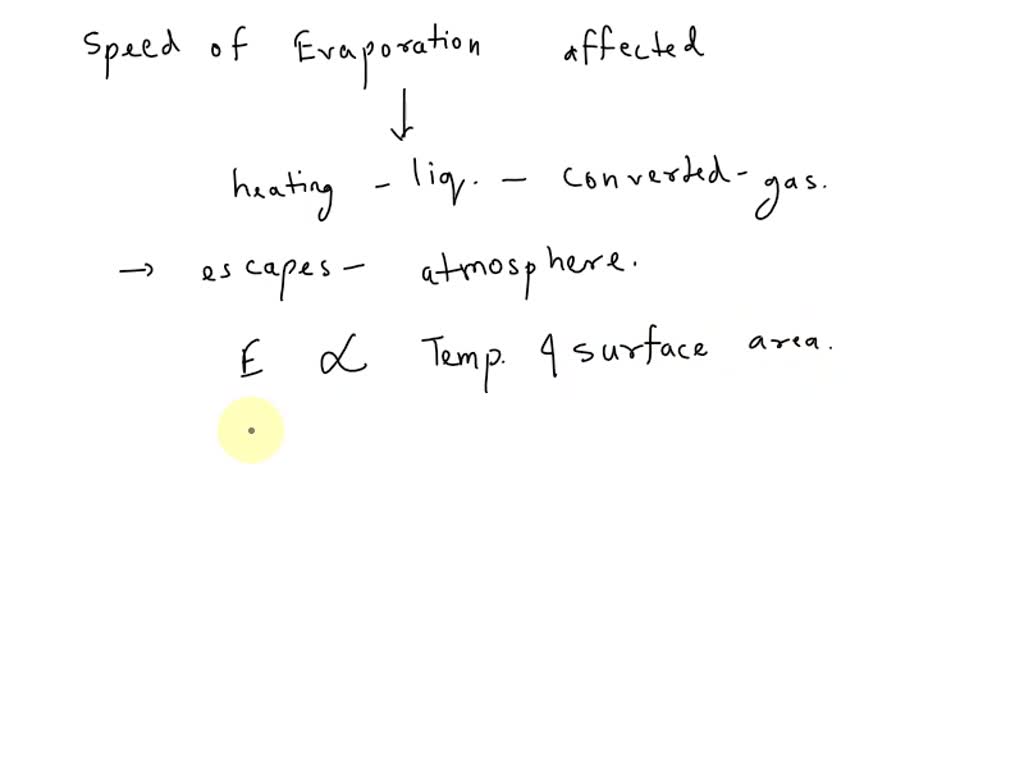 Speed of Evaporation affected
↓
heating - liq. - converted - gas.
→ escapes - atmosphere.
E ∝ Temp. & surface area.